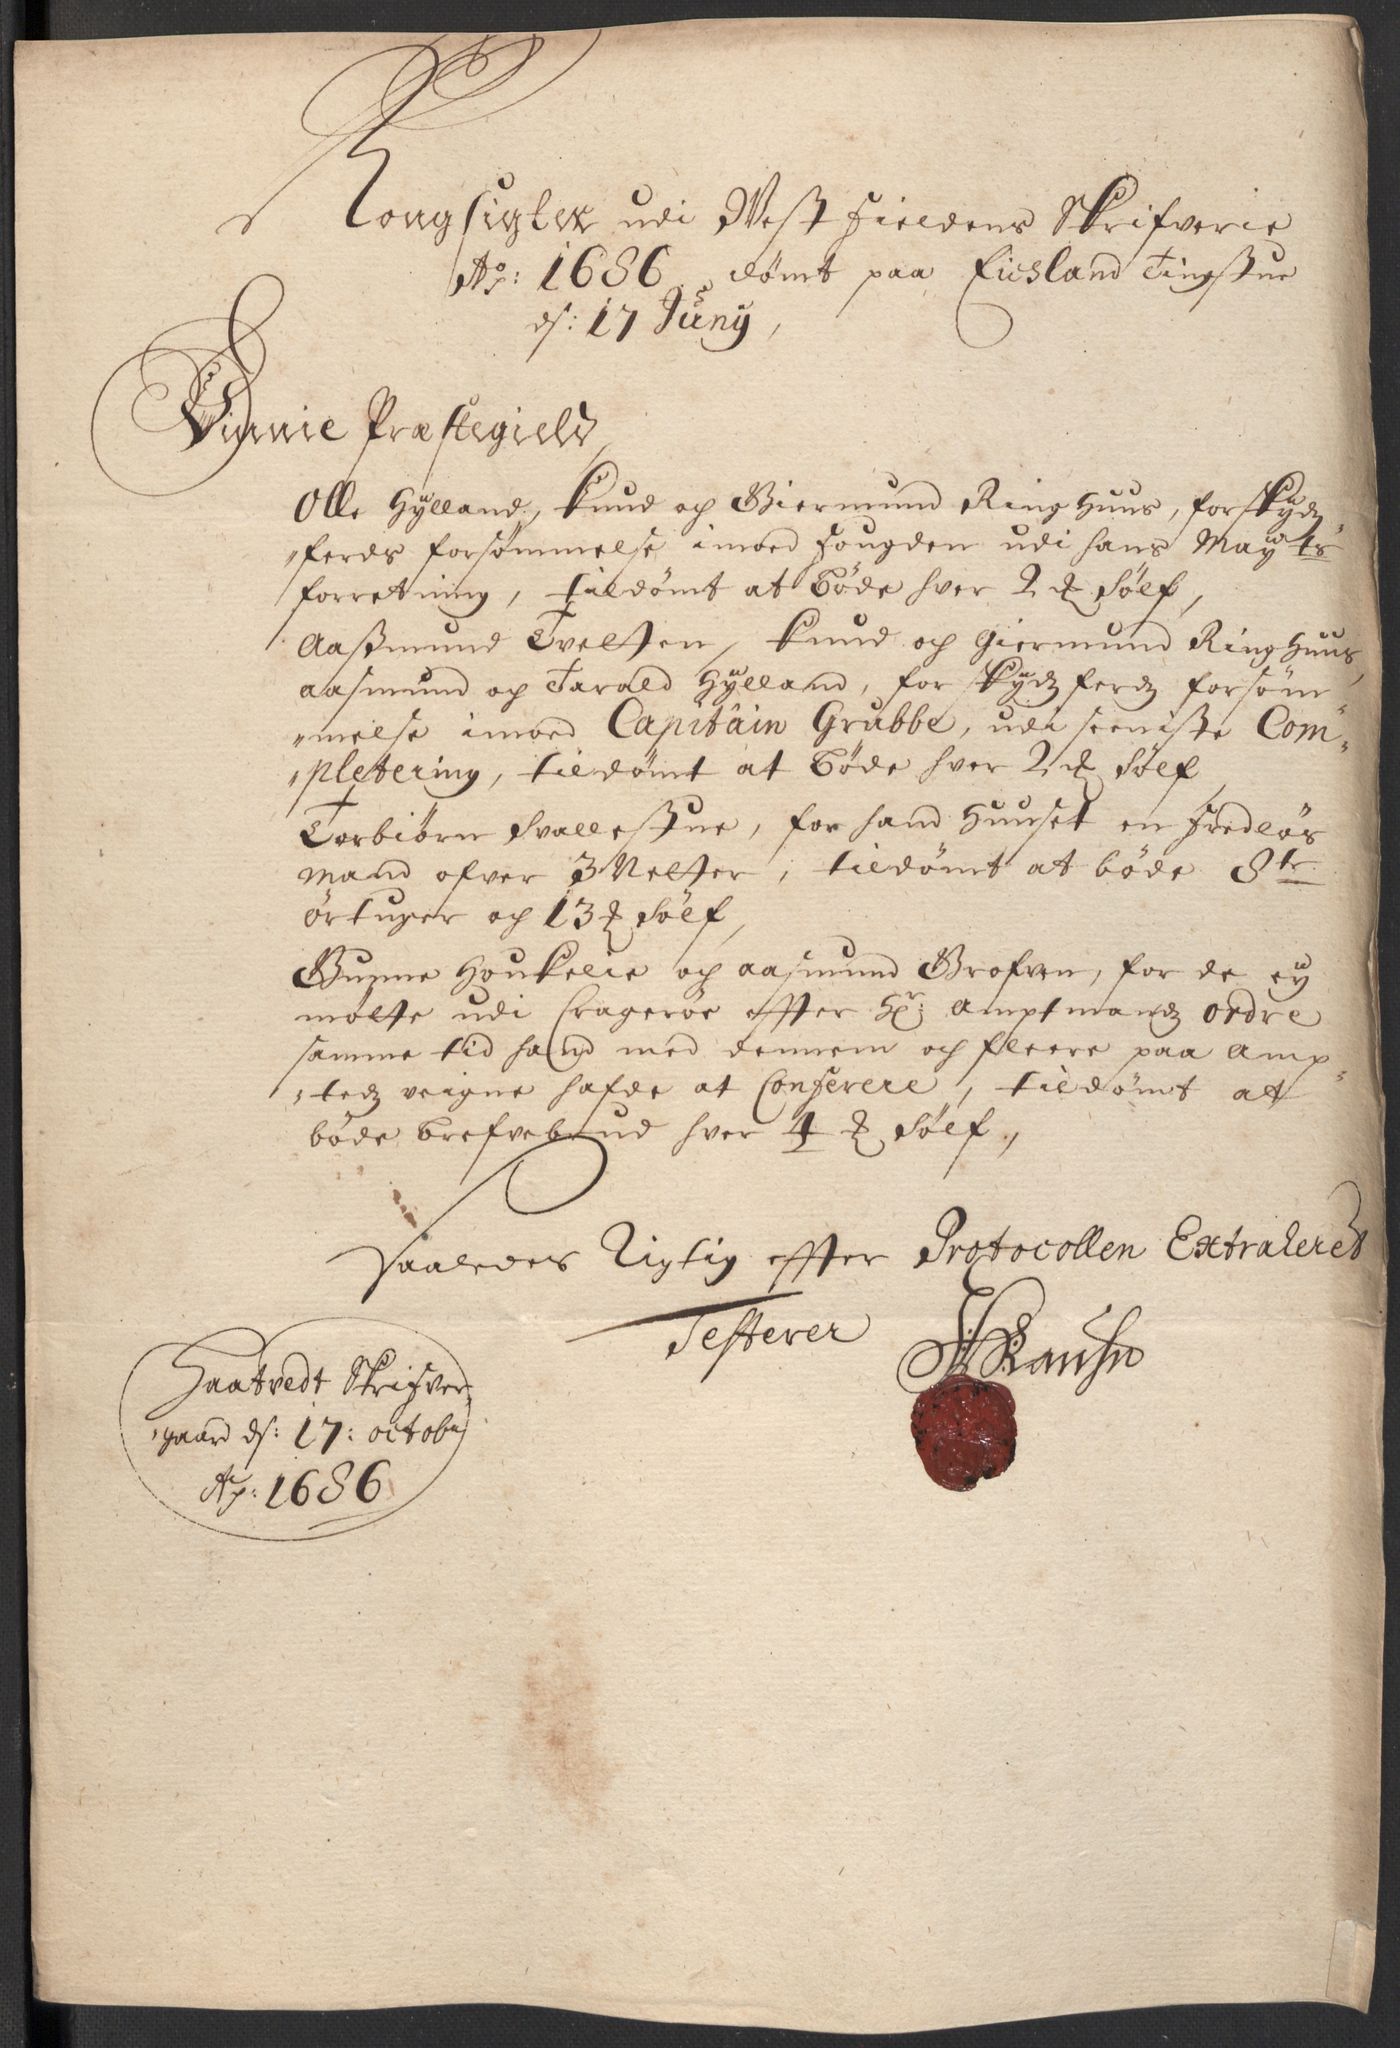 Kongsigter udi West Fieldens Skrifverie
Ao: 1686. dømt paa Eidsland Tingstue
ds: 17 Juny,
Vinnie Præstegield,
Olle Hylland, Knud og Giermund Ring Huus, for Skydz
"ferds forsømmelse imoed Fougden udi hans Mayts
forretning, tildømt at bøde hver 2 Sølf,
Aaßmund Tveften, Knud og Giermund Ring Huus,
Aasmund og Tarald Hylland, for Skydz ferdz forsøm"
"melse imoed Capitain Grubbe, udi seeniste Com"
"pletering, tildømt at bøde hver 2 Sølf,
Torbiørn Svallestue, for hand Huuset en Fredløs
Mand ofver 3 Netter, tildømt at bøde 8te
Ørtuger og 13 Sølf,
Gunne Houkelie og Aasmund Grofven, for de ey
møtte udi Cragerøe effter Hr: Amptmandz Ordre
samme tid hand med dennem og fleere paa Amp"
"tedz veigne hafde at Conferere, tildømt at
bøde brefvebrud hver 4 Sølf,
Saaledes Rigtig effter Protocollen Extraheret
Testerer
Haatvedt Skrifver
"gaard ds: 17: octob
Ao: 1686